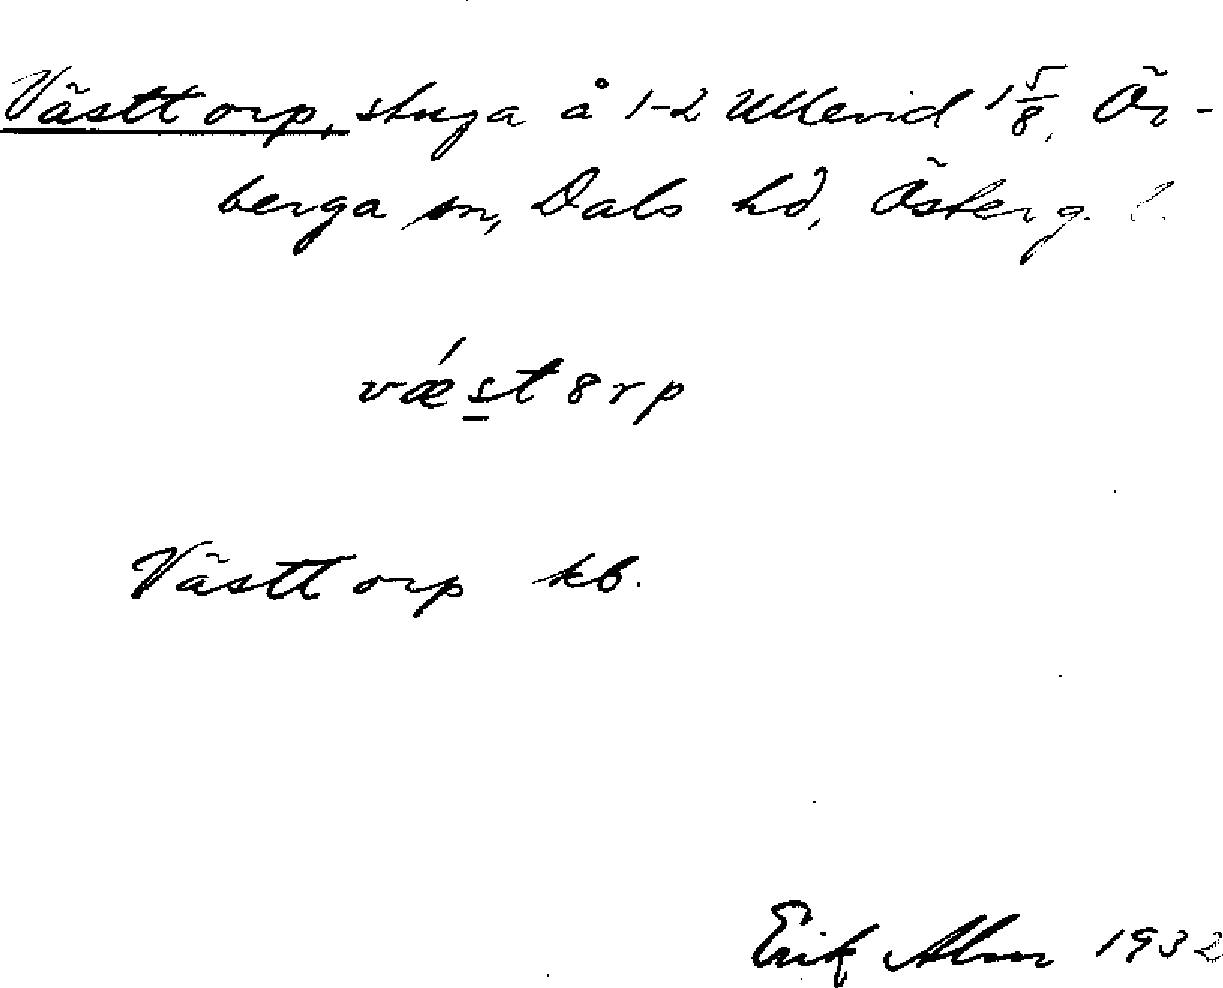 Västtorp, stuga å 1-2 Ullevid 1 5/8, Ör-
berga sn, Dals hd, Österg. l.
vǽst8rp
Västtorp kb.
Erik Alm 1932